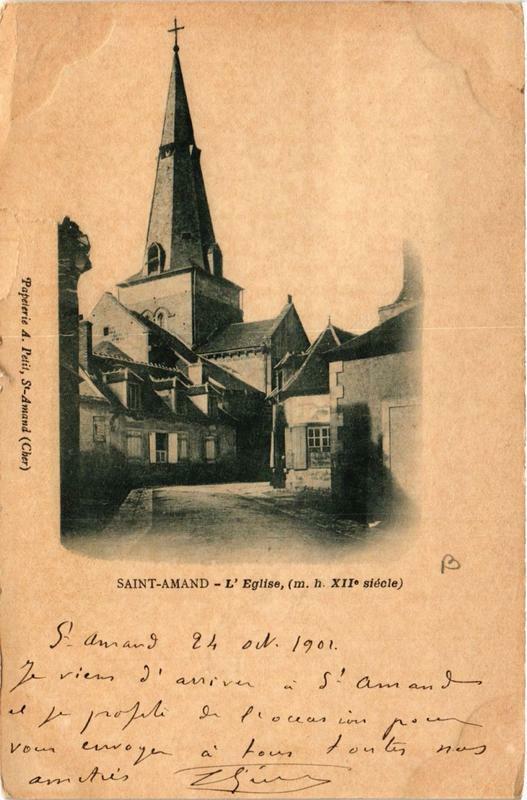 Papeterie A. Petit, St-Amand (Cher)
SAINT-AMAND - L'Eglise, (m. h. XIIe siécle)
B
St Amand 24 oct. 1901.
Je viens d'arriver à St Amand
et je profite de l'occasion pour
vous envoyer à tous toutes nos
amitiés